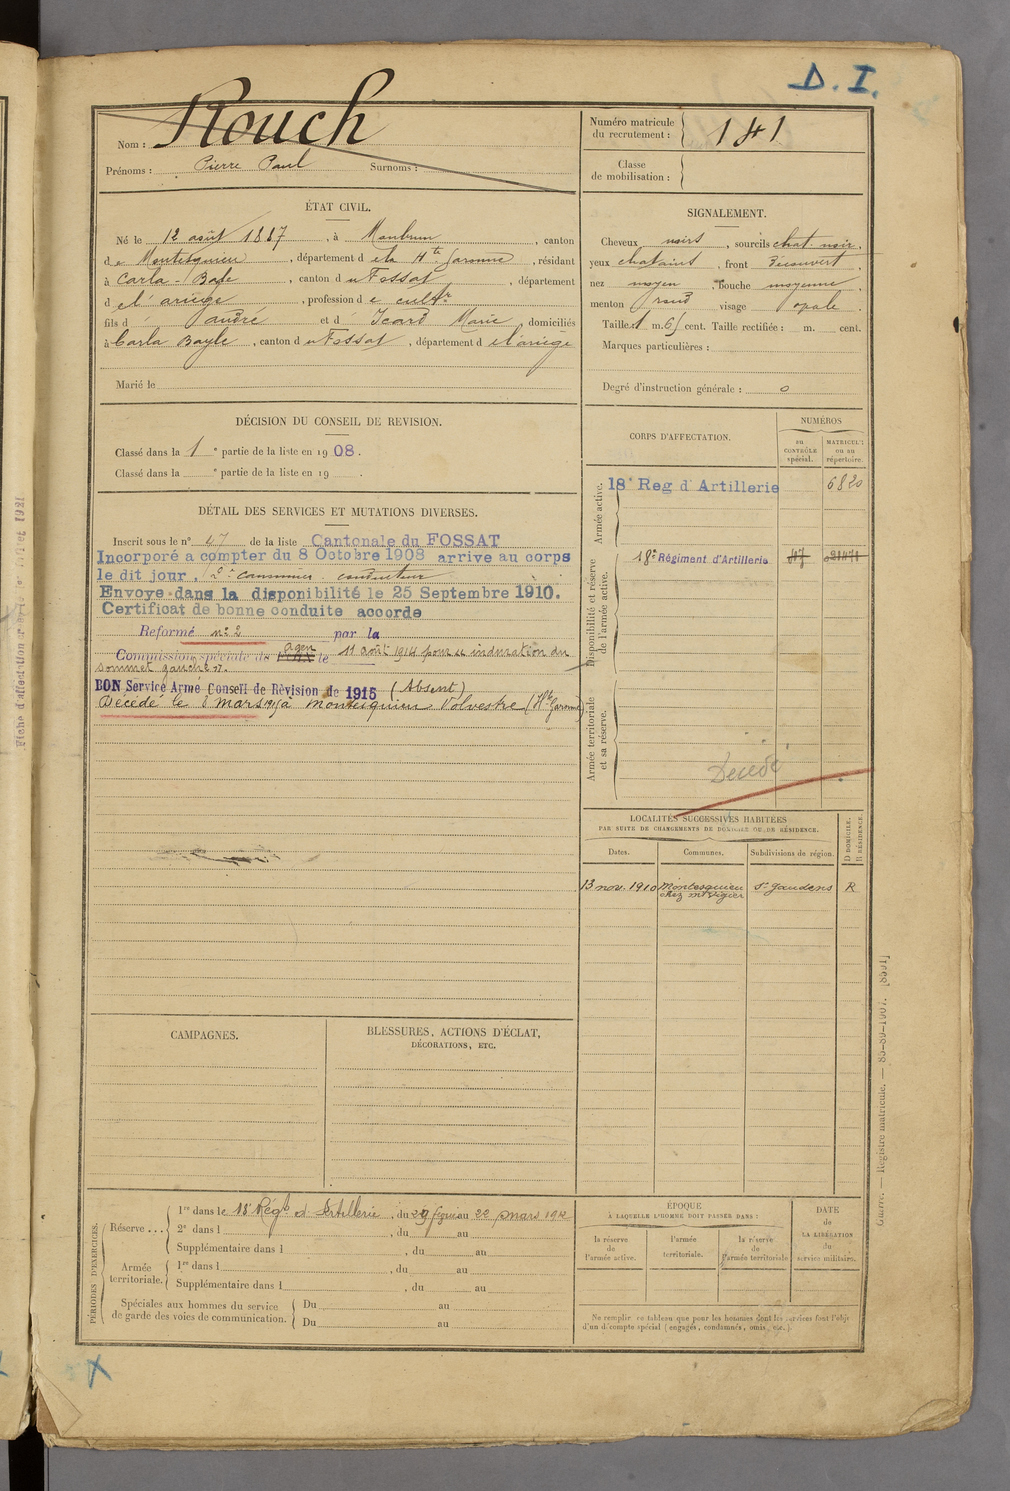 D. I.
Nom : Rouch
Prénoms : Pierre Paul Surnoms :
Numéro matricule du recrutement : 141
Classe de mobilisation :
ÉTAT CIVIL.
Né le 12 août 1887, à Monbrun, canton
de Montesquieu, département de la Hte Garonne, résidant
à Carla-Bade, canton du Fossat, département
de l'ariège, profession de cultr
fils d' andré et d' Icard Marie, domiciliés
à Carla Bayle, canton du Fossat, département de l'ariège
Marié le
SIGNALEMENT.
Cheveux noirs, sourcils chat. noir,
yeux chatains, front Découvert,
nez moyen, bouche moyenne,
menton rond visage opale.
Taille 1 m. 65 cent. Taille rectifiée : m. cent.
Marques particulières :
Degré d'instruction générale : 0
DÉCISION DU CONSEIL DE REVISION.
Classé dans la 1e partie de la liste en 1908.
Classé dans la e partie de la liste en 19 .
CORPS D'AFFECTATION.
NUMÉROS
au CONTRÔLE spécial.
MATRICULE ou au répertoire.
Armée active.
18e Reg d'Artillerie 6820
Disponibilité et réserve de l'armée active.
18e Régiment d'Artillerie 47
Armée territoriale et sa réserve.
Décédé
DÉTAIL DES SERVICES ET MUTATIONS DIVERSES.
Inscrit sous le n° 47 de la liste Cantonale du FOSSAT
Incorporé a compter du 8 Octobre 1908 arrive au corps
le dit jour, 2e canonnier conducteur
Envoye dans la disponibilité le 25 Septembre 1910.
Certificat de bonne conduite accorde
Reformé n° 2 par la
Commission spéciale de agen le 11 août 1914 pour induration du
sommet gauche
BON Service Armé Conseil de Révision de 1915 (Absent)
Décédé le 8 mars à Montesquieu Volvestre (Hte Garonne)
LOCALITÉS SUCCESSIVES HABITÉES
PAR SUITE DE CHANGEMENTS DE DOMICILE OU DE RÉSIDENCE.
Dates. Communes. Subdivisions de région. D DOMICILE. R RÉSIDENCE.
13 nov. 1910 Montesquieu chez mr Vigier St Gaudens R
CAMPAGNES.
BLESSURES, ACTIONS D'ÉCLAT,
DÉCORATIONS, ETC.
PÉRIODES D'EXERCICES.
Réserve...
1re dans le 18e Régt d'Artillerie, du 29 au 22 mars 1912
2e dans l , du au
Supplémentaire dans l , du au
Armée territoriale.
1re dans l , du au
Supplémentaire dans l , du au
Spéciales aux hommes du service de garde des voies de communication.
Du au
Du au
ÉPOQUE
À LAQUELLE L'HOMME DOIT PASSER DANS :
la réserve de l'armée active.
l'armée territoriale.
la réserve de l'armée territoriale
DATE de LA LIBÉRATION du service militaire.
Ne remplir ce tableau que pour les hommes dont les services font l'objet
d'un d'compte spécial (engagés, condamnés, omis, etc.).
Registre matricule.